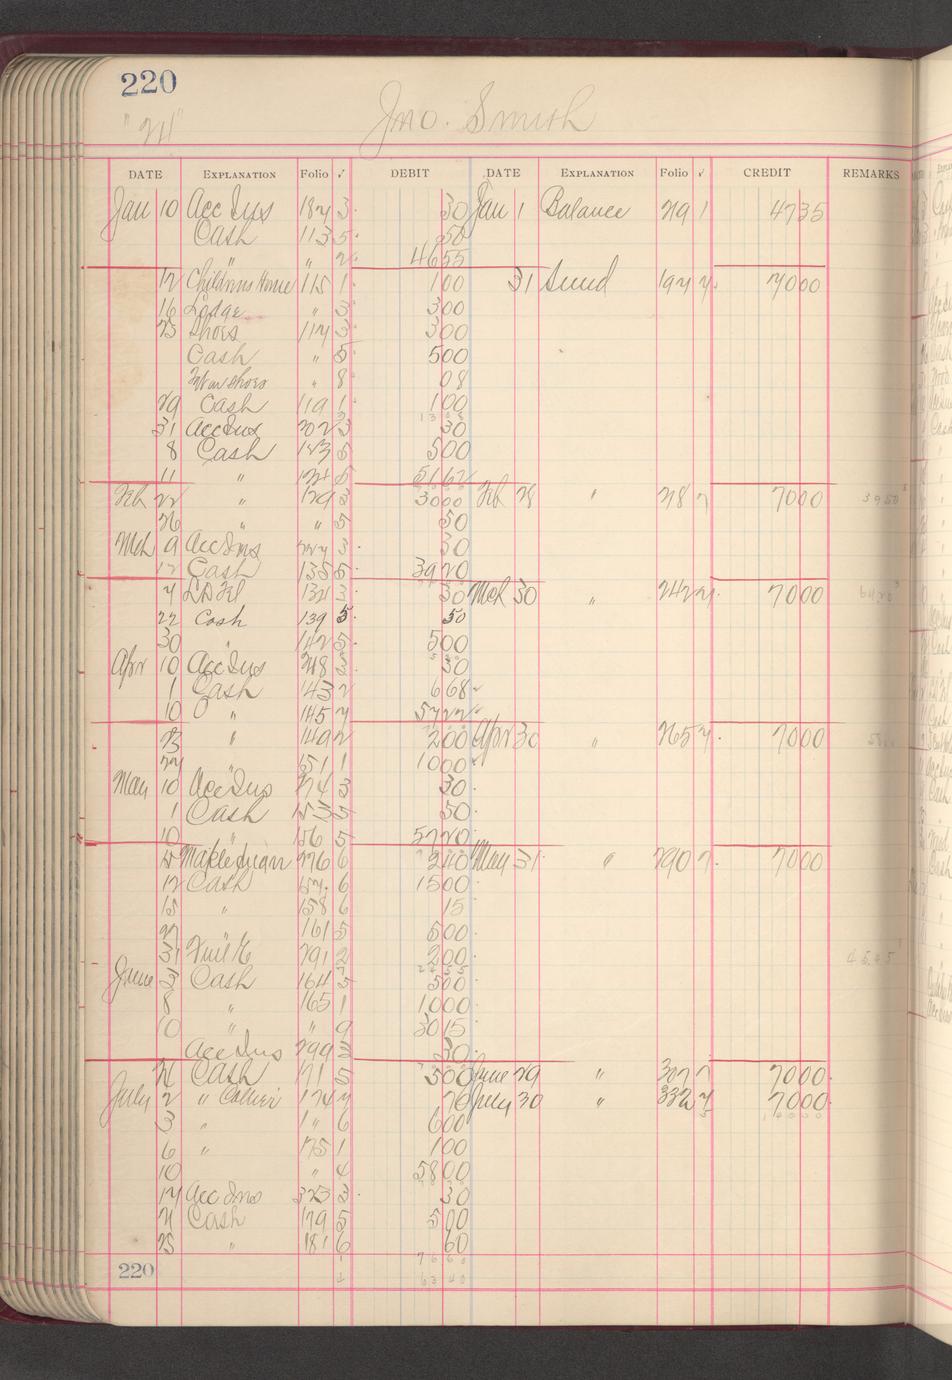 220
Jno. Smith
DATE EXPLANATION Folio √ DEBIT DATE EXPLANATION Folio √ CREDIT REMARKS
Jan 10 Acc Ins 187 3 30 Jan 1 Balance 219 1 4735
Cash 113 5 50
" " 2 4655
12 Childrens Home 115 1 100 31 Sund 194 7000
16 Lodge " 3 300
23 Shoes 117 3 300
Cash " 5 500
" 8 08
29 Cash 119 1 100
31 Acc Ins 202 3 30
8 Cash 123 5 500
11 " 124 5 5162
Feb 22 " 129 3 3000 Feb 28 " 218 7000
26 " " 5 50
Mch 9 Acc Ins 227 3 30
12 Cash 135 5 3920
132 3 30 Mch 30 " 242 7000
22 Cash 139 5 50
30 " 142 5 500
Apr 10 Acc Ins 248 3 30
1 Cash 143 2 668
10 " 145 5722
23 " 149 2 200 Apr 30 " 265 7000
" 151 1 1000
May 10 Acc Ins 274 3 30
1 Cash 153 5 50
10 " 156 5 5720
276 6 240 May 31 " 290 7000
12 Cash 157 6 1500
15 " 158 6 15
" 161 5 500
31 291 2 200
June 3 Cash 164 5 500
8 " 165 1 1000
10 " " 9 3015
Acc Ins 299 3 30
Cash 171 5 500 June 29 " 307 7000
July 2 " Collier 174 70 July 30 " 332 7000
3 " " 6 600
6 " 175 1 100
10 " 4 5800
Acc Ins 323 3 30
Cash 179 5 500
25 " 181 6 60
220 7660
6340